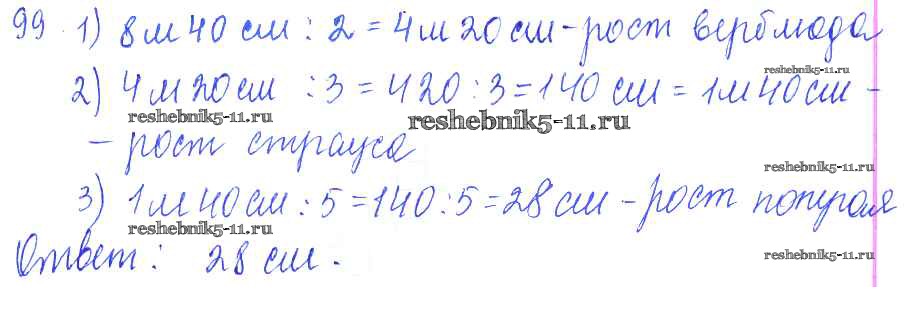 99 1) 8 м 40 см : 2 = 4 м 20 см - рост верблюда
reshebnik5-11.ru
2) 4 м 20 см : 3 = 420 : 3 = 140 см = 1 м 40 см -
reshebnik5-11.ru
reshebnik5-11.ru
- рост страуса
reshebnik5-11.ru
3) 1 м 40 см : 5 = 140 : 5 = 28 см - рост попугая
reshebnik5-11.ru
Ответ: 28 см.
reshebnik5-11.ru